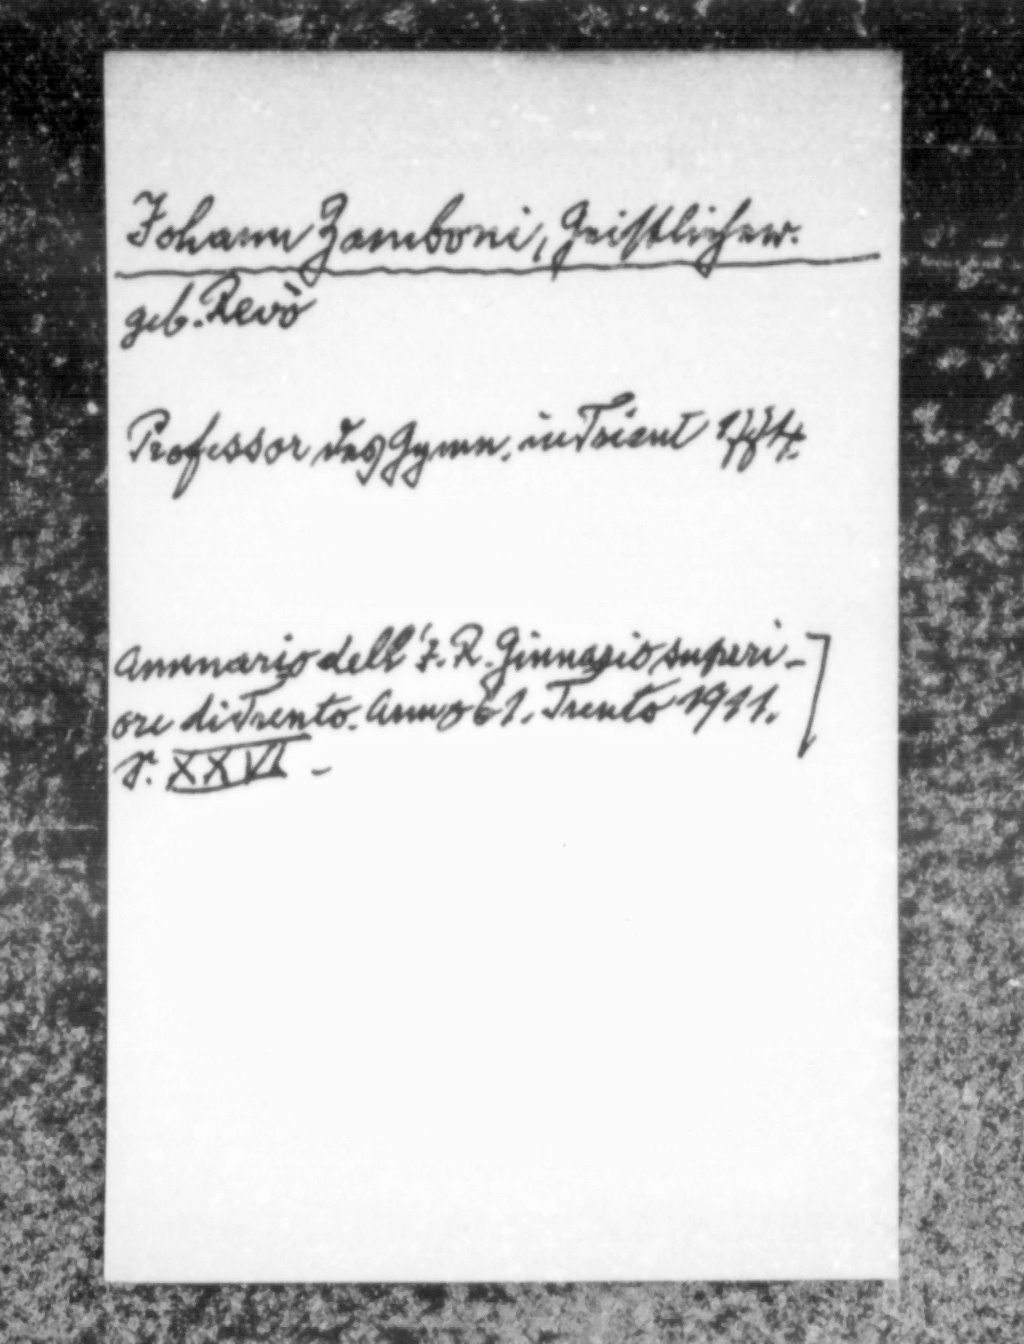 Johann Zamboni, Geistlicher.
geb. Revò
Professor des Gymn. in Trient 1774.
Annuario dell'I. R. Ginnasio superi-
ore di Trento. Anno 61. Trento 1911.
S. XXVI -